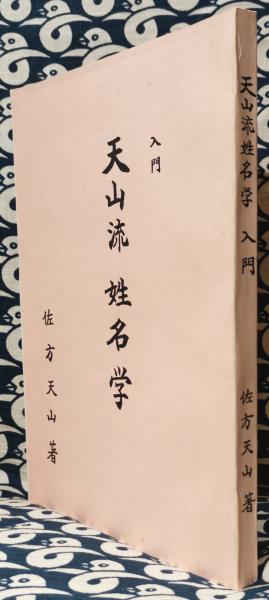 入門
天山流 姓名学
佐方天山 著
天山流姓名学 入門
佐方天山 著